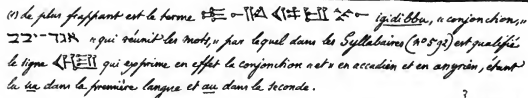 (1) de plus frappant est le terme igidibbu, « conjonction, »
« qui réunit les mots, » par lequel dans les Syllabaires (n° 592) est qualifié
le signe qui exprime en effet la conjonction « et » en accadien et en assyrien, étant
la va dans la première langue et au dans la seconde.